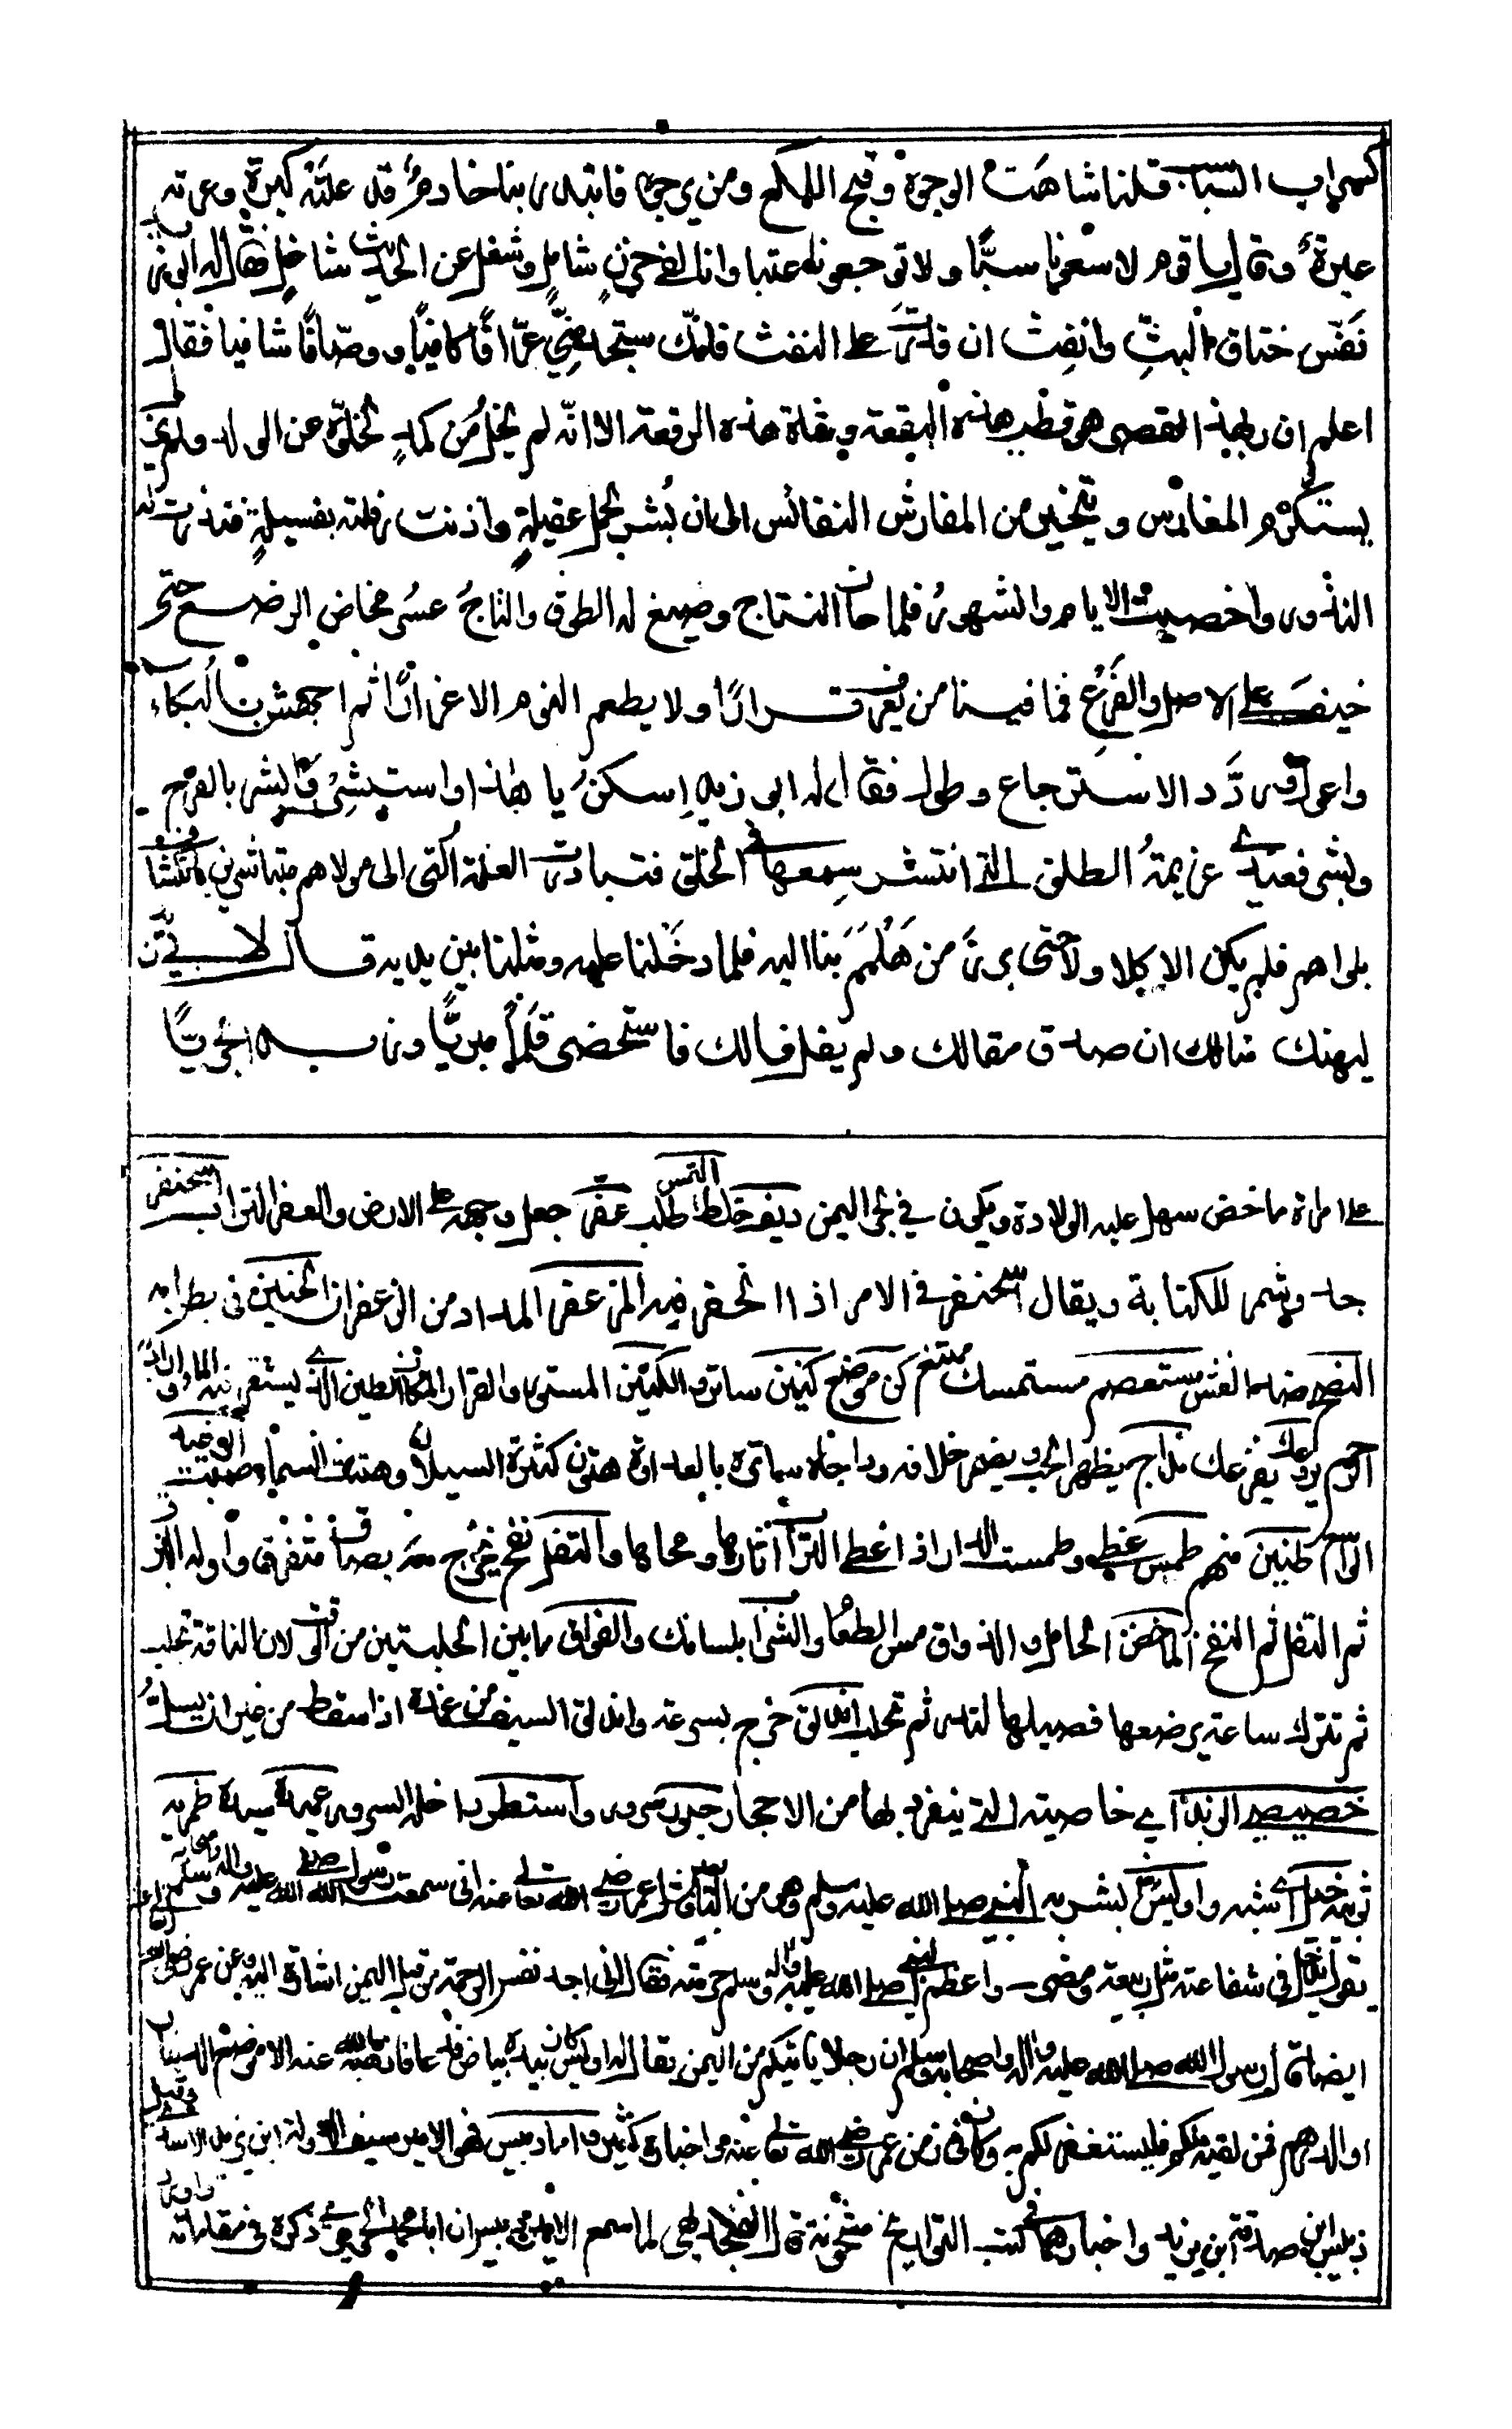 كسراب السباسب قلنا شاهت الوجوه وقبح اللكع ومن يرجوه فابتدر بنا خادم قد علته كبرة وعرته
عبرة وقال يا قوم لا توسعونا سبًّا ولا توجعونا عتبا وانا لفي حزنٍ شاملٍ وشغلٍ عن الحديث شاغلٍ فقال له ابو زيد
نَفّس خناق البثِّ وانفِث ان قدرت على النفث فانك ستجد منّي عرّافًا كافيًا ووصّافًا شافيا فقال له
اعلم ان رب هذا القصر هو قطب هذه البقعة وشاه هذه الرقعة الا انّه لم يخلُ من كمدٍ لخلوّه من الولد ولم يزل
يستكرم المغارس ويتخير من المفارش النفائس الى ان بُشر بحمل عقيلةٍ واذنت رقلته بفسيلةٍ فنذرت له
النذور واحصيت الايام والشهور فلما حان النتاج وصيغ له الطوق والتاجُ عسُر مخاض الوضع حتى
خيف على الاصل والفرع فما فينا من يعرف قرارًا ولا يطعم النوم الا غرارًا ثم اجهش بالبكاء
واعول وردّد الاسترجاع وطول فقال له ابو زيد اسكن يا هذا واستبشِر وابشر بالفرج
وبشر فعندي عزيمةُ الطلق التي انتشر سمعها في الخلق فتبادرت الغلمة الى مولاهم متباشرين بانكشاف
بلواهم فلم يكن الا كلا ولا حتى برز من هَلْمَمَ بنا اليه فلما دخلنا عليه ومثلنا بين يديه قال لابي زيد
ليهنك منالك ان صدق مقالك ولم يفل فالك فاستحضر قلمًا مبريًّا وزبدًا بحريًّا
على امراة ماخض سهل عليه الولادة ويكون في بحر اليمن ديف خلط التمس طلب عفّر جعل وجهه على الارض والعفر التراب اسحنفر
جد وشمر للكتابة ويقال اسحنفر في الامر اذا المزعفر المداد من الزعفران الجنين في بطن امه
النصح ضد الغش مستعصم مستمسك ممتنع كن موضع كنين ساتر والكنين المستور والقرار المكان المطمئن الذي يستقر فيه الماء
يروعك يفزعك مداج يظهر الحب ويضمر خلافه وداجاه ساتره بالعداوة هتون كثيرة السيلان وهتنت السماء صبت
طنين منهم طمس غطى وطمست الدار اذا غطى التراب آثارها ومحاها والتفل نفخ يخرج معه بصاق متفرق واوله البزق
ثم التفل ثم النفخ الماخض الحامل والذواق مس الطعام والشراب بلسانك والفواق ما بين الحلبتين من الوقت لان الناقة تحلب
ثم تترك ساعة يرضعها فصيلها لتدر ثم تحلب اندلق خرج بسرعة واندلق السيف من غمده اذا سقط من غير ان يسل
خصيصى الزبد اي خاصيته التي ينفرد بها من الاحجار حبور سرور واستطير داخله السرور عميدة سيدة طمريه
ثوبيه خلقين شبه واويس بشر به النبي صلى الله عليه وسلم وهو من التابعين عمر رضي الله تعالى عنه انى سمعت رسول الله صلى الله عليه واله وسلم
يقول يدخل في شفاعته مثل ربيعة ومضر واعظم النبي صلى الله عليه واله وسلم حرمته فقال انى اجد نفس الرحمة من قبل اليمن اشارة اليه وعن عمر رضي الله عنه
ايضا قال رسول الله صلى الله عليه واله واصحابه وسلم ان رجلا ياتيكم من اليمن يقال له اويس كان بيده بياض فدعا فاذهبه الله عنه الا موضع الدينار
او الدرهم فمن لقيه منكم فليستغفر لكم وكان في زمن عمر رضي الله تعالى عنه واخباره كثيرة واما دبيس فهو الامير سيف الدولة ابن مزيد الاسدي وقيل
دبيس ابن صدقة ابن يزيد واخبارهما في كتب التواريخ مشحونة قال لما سمع الامير دبيس ان ابا محمد الحريرى ذكره في مقاماته